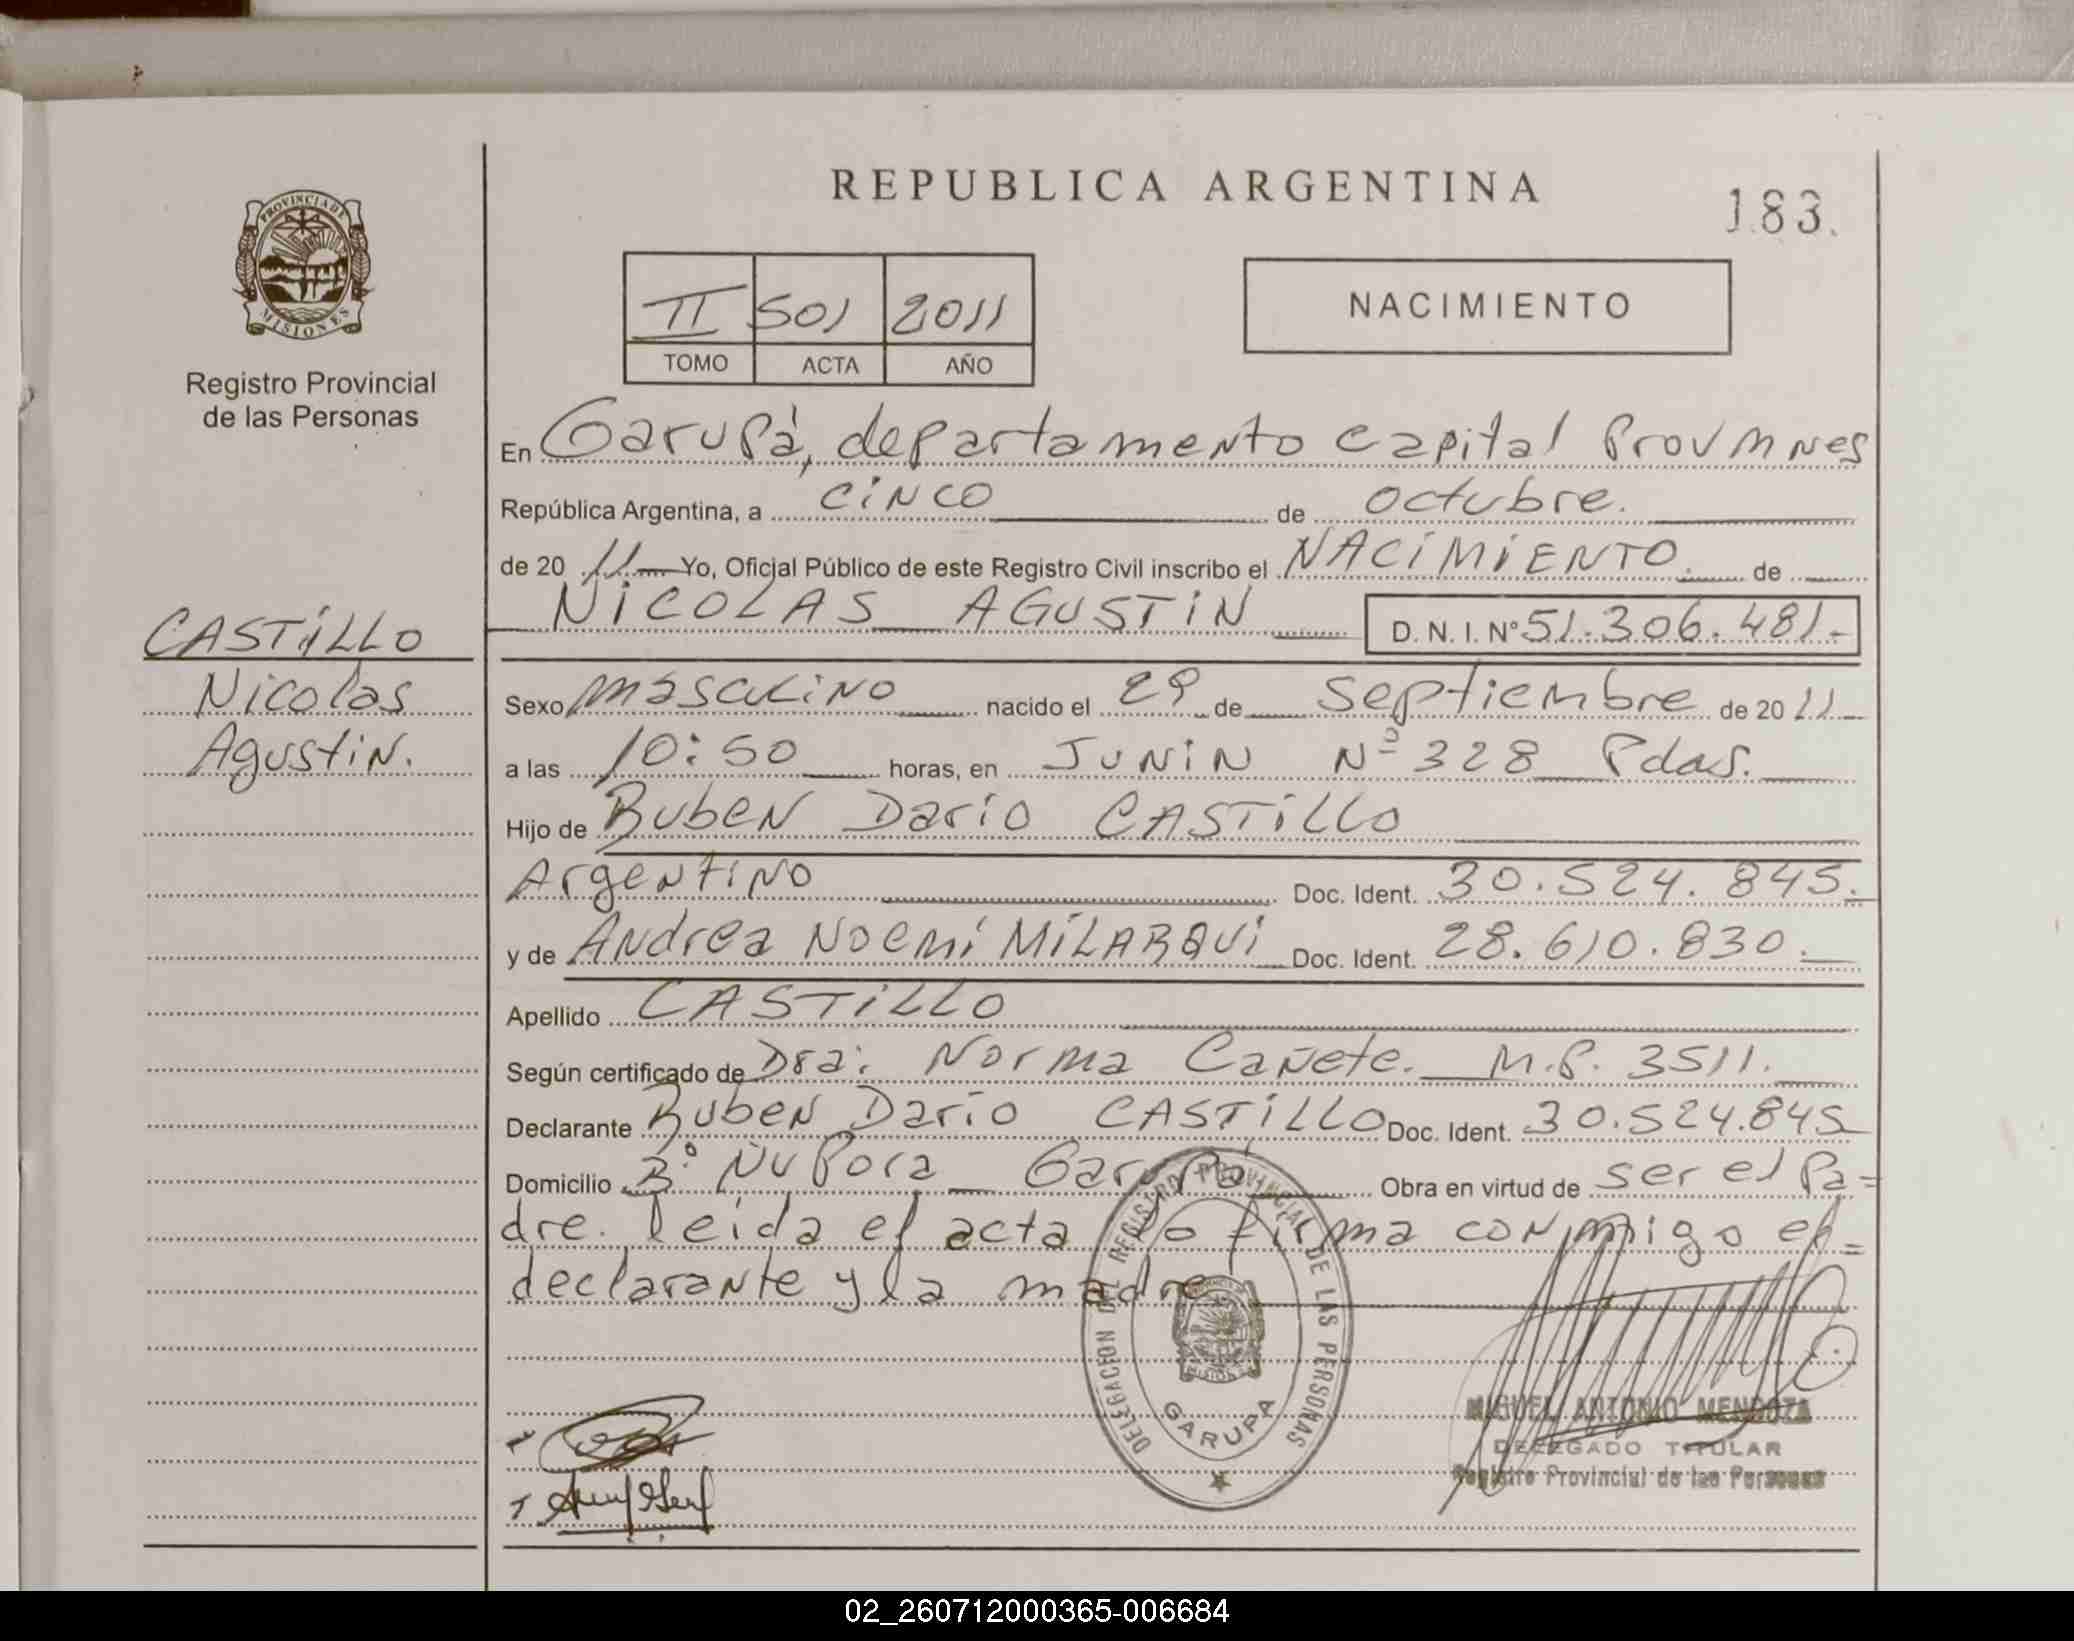 REPUBLICA ARGENTINA
183.
PROVINCIA DE
MISIONES
Registro Provincial
de las Personas
II 501 2011
TOMO ACTA AÑO
NACIMIENTO
En Garupá, departamento capital Prov Mnes
República Argentina, a cinco de octubre.
de 20 11 Yo, Oficial Público de este Registro Civil inscribo el NACIMIENTO de
NICOLAS AGUSTIN D. N. I. Nº 51.306.481.-
CASTILLO
Nicolas
Agustin.
Sexo masculino nacido el 29 de septiembre de 20 11
a las 10:50 horas, en JUNIN Nº 328 Pdas.
Hijo de Ruben Dario CASTILLO
Argentino Doc. Ident. 30.524.845.
y de Andrea Noemí MILARQUI Doc. Ident. 28.610.830.
Apellido CASTILLO
Según certificado de Dra: Norma Cañete. M.P. 3511.
Declarante Ruben Dario CASTILLO Doc. Ident. 30.524.845
Domicilio Bº Ñu Pora Garupá Obra en virtud de ser el Pa=
dre. leida el acta la firma conmigo el=
declarante y la madre
DELEGACION DEL REGISTRO PROVINCIAL DE LAS PERSONAS
GARUPA
MIGUEL ANTONIO MENDOZA
DELEGADO TITULAR
Registro Provincial de las Personas
02_260712000365-006684